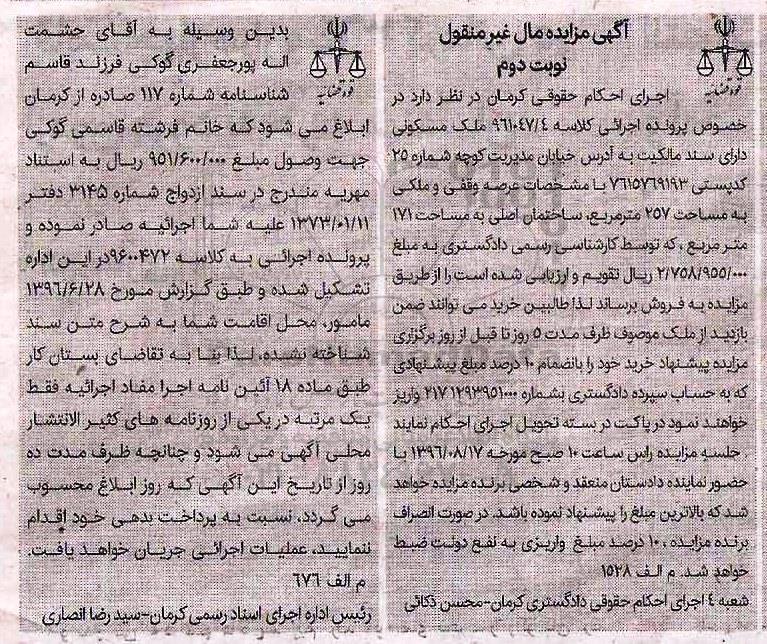 آگهی مزایده مال غیر منقول
نوبت دوم
قوه قضاییه
اجرای احکام حقوقی کرمان در نظر دارد در
خصوص پرونده اجرائی کلاسه ۹۶۱۰۴۷/۴ ملک مسکونی
دارای سند مالکیت به آدرس خیابان مدیریت کوچه شماره ۲۵
کدپستی ۷۶۱۵۷۶۹۱۹۳ با مشخصات عرصه وقفی و ملکی
به مساحت ۲۵۷ مترمربع، ساختمان اصلی به مساحت ۱۷۱
متر مربع ، که توسط کارشناسی رسمی دادگستری به مبلغ
۲/۷۵۸/۹۵۵/۰۰۰ ریال تقویم و ارزیابی شده است را از طریق
مزایده به فروش برساند لذا طالبین خرید می توانند ضمن
بازدید از ملک موصوف ظرف مدت ۵ روز تا قبل از روز برگزاری
مزایده پیشنهاد خرید خود را بانضمام ۱۰ درصد مبلغ پیشنهادی
که به حساب سپرده دادگستری بشماره ۲۱۷۱۲۹۳۹۵۱۰۰۰ واریز
خواهند نمود در پاکت در بسته تحویل اجرای احکام نمایند
. جلسه مزایده راس ساعت ۱۰ صبح مورخه ۱۳۹۶/۰۸/۱۷ با
حضور نماینده دادستان منعقد و شخصی برنده مزایده خواهد
شد که بالاترین مبلغ را پیشنهاد نموده باشد. در صورت انصراف
برنده مزایده ، ۱۰ درصد مبلغ واریزی به نفع دولت ضبط
خواهد شد. م الف ۱۵۲۸
شعبه ٤ اجرای احکام حقوقی دادگستری کرمان-محسن ذکائی
قوه قضاییه
بدین وسیله به آقای حشمت
اله پورجعفری گوکی فرزند قاسم
شناسنامه شماره ۱۱۷ صادره از کرمان
ابلاغ می شود که خانم فرشته قاسمی گوکی
جهت وصول مبلغ ۹۵۱/۶۰۰/۰۰۰ ریال به استناد
مهریه مندرج در سند ازدواج شماره ۳۱۴۵ دفتر
۱۳۷۳/۰۱/۱۱ علیه شما اجرائیه صادر نموده و
پرونده اجرائی به کلاسه ۹۶۰۰۴۷۲در این اداره
تشکیل شده و طبق گزارش مورخ ۱۳۹۶/۶/۲۸
مامور، محل اقامت شما به شرح متن سند
شناخته نشده، لذا بنا به تقاضای بستان کار
طبق ماده ۱۸ آئین نامه اجرا مفاد اجرائیه فقط
یک مرتبه در یکی از روزنامه های کثیر الانتشار
محلی آگهی می شود و چنانچه ظرف مدت ده
روز از تاریخ این آگهی که روز ابلاغ محسوب
می گردد، نسبت به پرداخت بدهی خود اقدام
ننمایید، عملیات اجرائی جریان خواهد یافت.
م الف ۶۷۶
رئیس اداره اجرای اسناد رسمی کرمان-سید رضا انصاری